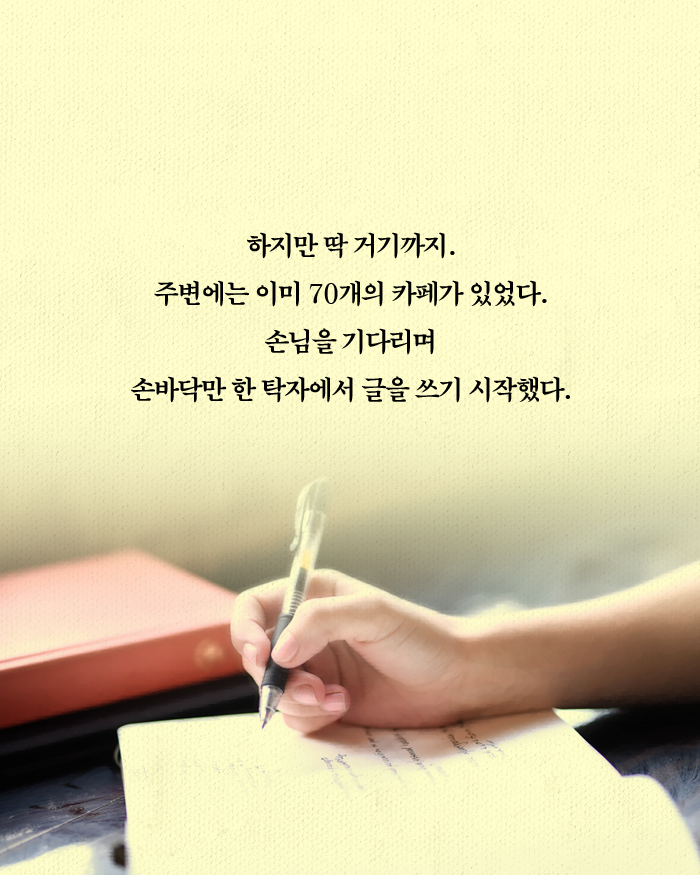 하지만 딱 거기까지.
주변에는 이미 70개의 카페가 있었다.
손님을 기다리며
손바닥만 한 탁자에서 글을 쓰기 시작했다.